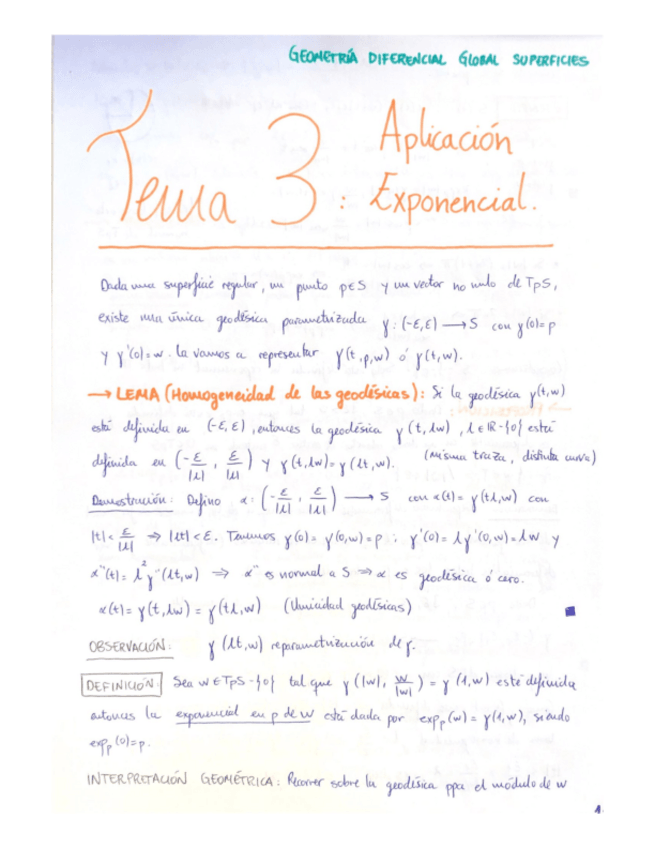 GEOMETRÍA DIFERENCIAL GLOBAL SUPERFICIES
Tema 3: Aplicación
Exponencial.
Dada una superficie regular, un punto p∈S y un vector no nulo de TpS,
existe una única geodésica parametrizada γ: (-ε,ε) ⟶ S con γ(0)=p
y γ'(0)=w. La vamos a representar γ(t,p,w) ó γ(t,w).
→ LEMA (Homogeneidad de las geodésicas): Si la geodésica γ(t,w)
está definida en (-ε,ε), entonces la geodésica γ(t,λw), λ∈ℝ-{0} está
definida en (-ε/|λ|, ε/|λ|) y γ(t,λw)=γ(λt,w). (misma traza, distinta curva)
Demostración: Defino α: (-ε/|λ|, ε/|λ|) ⟶ S con α(t)=γ(tλ,w) con
|t|< ε/|λ| ⇒ |λt|<ε. Tenemos γ(0)=γ(0,w)=p ; γ'(0)=λγ'(0,w)=λw y
α''(t)=λ²γ''(λt,w) ⇒ α'' es normal a S ⇒ α es geodésica ó cero.
α(t)=γ(t,λw)=γ(tλ,w) (Unicidad geodésicas)
OBSERVACIÓN: γ(λt,w) reparametrización de γ.
DEFINICIÓN: Sea w∈TpS-{0} tal que γ(|w|, w/|w|) = γ(1,w) esté definida
entonces la exponencial en p de w está dada por expₚ(w)=γ(1,w), siendo
expₚ(0)=p.
INTERPRETACIÓN GEOMÉTRICA: Recorrer sobre la geodésica ppa el módulo de w
1.